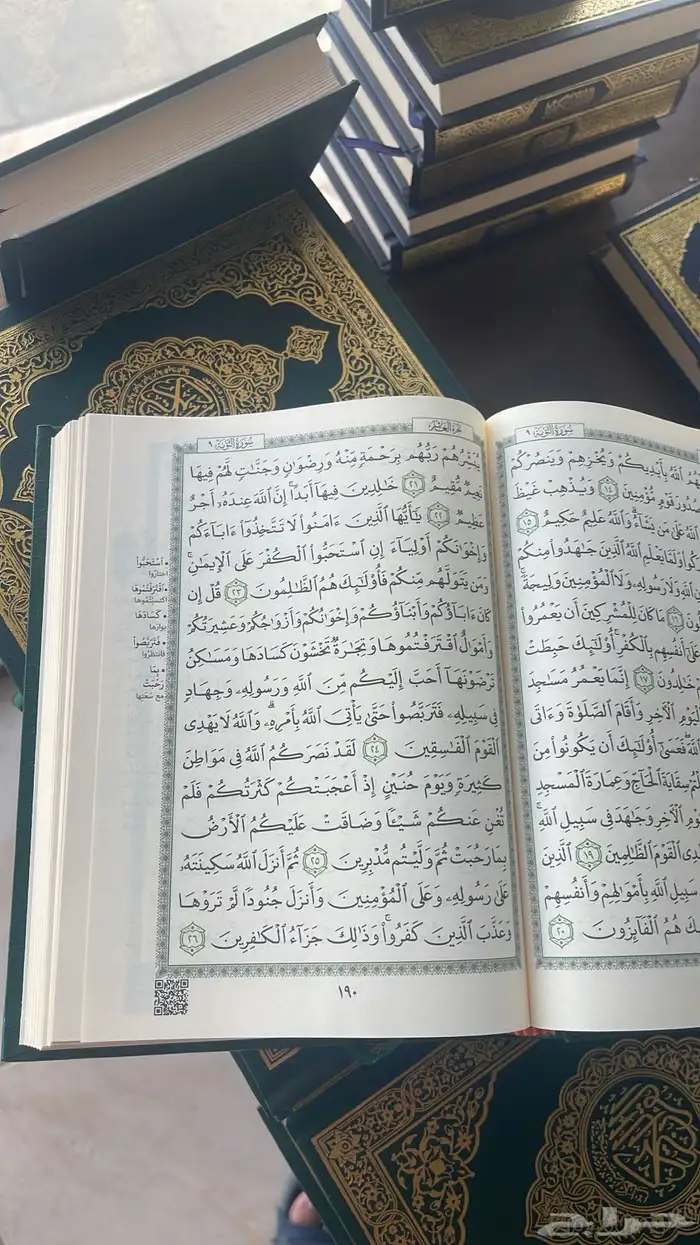 سُورَةُ التَّوْبَةِ ٩
ـهُمُ ٱللَّهُ بِأَيْدِيكُمْ وَيُخْزِهِمْ وَيَنصُرْكُمْ
ـدُورَ قَوْمٍ مُّؤْمِنِينَ ١٤ وَيُذْهِبْ غَيْظَ
ٱللَّهُ عَلَىٰ مَن يَشَآءُ ۗ وَٱللَّهُ عَلِيمٌ حَكِيمٌ ١٥
ـرَكُوا۟ وَلَمَّا يَعْلَمِ ٱللَّهُ ٱلَّذِينَ جَٰهَدُوا۟ مِنكُمْ
ٱللَّهِ وَلَا رَسُولِهِۦ وَلَا ٱلْمُؤْمِنِينَ وَلِيجَةً ۚ
ـلُونَ ١٦ مَا كَانَ لِلْمُشْرِكِينَ أَن يَعْمُرُوا۟
عَلَىٰٓ أَنفُسِهِم بِٱلْكُفْرِ ۚ أُو۟لَٰٓئِكَ حَبِطَتْ
خَٰلِدُونَ ١٧ إِنَّمَا يَعْمُرُ مَسَٰجِدَ
ـيَوْمِ ٱلْـَٔاخِرِ وَأَقَامَ ٱلصَّلَوٰةَ وَءَاتَى
ٱللَّهَ ۖ فَعَسَىٰٓ أُو۟لَٰٓئِكَ أَن يَكُونُوا۟ مِنَ
ـتُمْ سِقَايَةَ ٱلْحَآجِّ وَعِمَارَةَ ٱلْمَسْجِدِ
ـوْمِ ٱلْـَٔاخِرِ وَجَٰهَدَ فِى سَبِيلِ ٱللَّهِ ۚ
ـدِى ٱلْقَوْمَ ٱلظَّٰلِمِينَ ١٩ ٱلَّذِينَ
سَبِيلِ ٱللَّهِ بِأَمْوَٰلِهِمْ وَأَنفُسِهِمْ
ـكَ هُمُ ٱلْفَآئِزُونَ ٢٠
الجُزْءُ العَاشِرُ
سُورَةُ التَّوْبَةِ ٩
يُبَشِّرُهُمْ رَبُّهُم بِرَحْمَةٍ مِّنْهُ وَرِضْوَٰنٍ وَجَنَّٰتٍ لَّهُمْ فِيهَا
نَعِيمٌ مُّقِيمٌ ٢١ خَٰلِدِينَ فِيهَآ أَبَدًا ۚ إِنَّ ٱللَّهَ عِندَهُۥٓ أَجْرٌ
عَظِيمٌ ٢٢ يَٰٓأَيُّهَا ٱلَّذِينَ ءَامَنُوا۟ لَا تَتَّخِذُوٓا۟ ءَابَآءَكُمْ
وَإِخْوَٰنَكُمْ أَوْلِيَآءَ إِنِ ٱسْتَحَبُّوا۟ ٱلْكُفْرَ عَلَى ٱلْإِيمَٰنِ ۚ
وَمَن يَتَوَلَّهُم مِّنكُمْ فَأُو۟لَٰٓئِكَ هُمُ ٱلظَّٰلِمُونَ ٢٣ قُلْ إِن
كَانَ ءَابَآؤُكُمْ وَأَبْنَآؤُكُمْ وَإِخْوَٰنُكُمْ وَأَزْوَٰجُكُمْ وَعَشِيرَتُكُمْ
وَأَمْوَٰلٌ ٱقْتَرَفْتُمُوهَا وَتِجَٰرَةٌ تَخْشَوْنَ كَسَادَهَا وَمَسَٰكِنُ
تَرْضَوْنَهَآ أَحَبَّ إِلَيْكُم مِّنَ ٱللَّهِ وَرَسُولِهِۦ وَجِهَادٍ
فِى سَبِيلِهِۦ فَتَرَبَّصُوا۟ حَتَّىٰ يَأْتِىَ ٱللَّهُ بِأَمْرِهِۦ ۗ وَٱللَّهُ لَا يَهْدِى
ٱلْقَوْمَ ٱلْفَٰسِقِينَ ٢٤ لَقَدْ نَصَرَكُمُ ٱللَّهُ فِى مَوَاطِنَ
كَثِيرَةٍ ۙ وَيَوْمَ حُنَيْنٍ ۙ إِذْ أَعْجَبَتْكُمْ كَثْرَتُكُمْ فَلَمْ
تُغْنِ عَنكُمْ شَيْـًٔا وَضَاقَتْ عَلَيْكُمُ ٱلْأَرْضُ
بِمَا رَحُبَتْ ثُمَّ وَلَّيْتُم مُّدْبِرِينَ ٢٥ ثُمَّ أَنزَلَ ٱللَّهُ سَكِينَتَهُۥ
عَلَىٰ رَسُولِهِۦ وَعَلَى ٱلْمُؤْمِنِينَ وَأَنزَلَ جُنُودًا لَّمْ تَرَوْهَا
وَعَذَّبَ ٱلَّذِينَ كَفَرُوا۟ ۚ وَذَٰلِكَ جَزَآءُ ٱلْكَٰفِرِينَ ٢٦
• ٱسْتَحَبُّوا۟
اختاروا
• ٱقْتَرَفْتُمُوهَا
اكتسبتموها
• كَسَادَهَا
بوارها
• فَتَرَبَّصُوا۟
فانتظروا
• بِمَا
رَحُبَتْ
مع سعتها
١٩٠
حراج